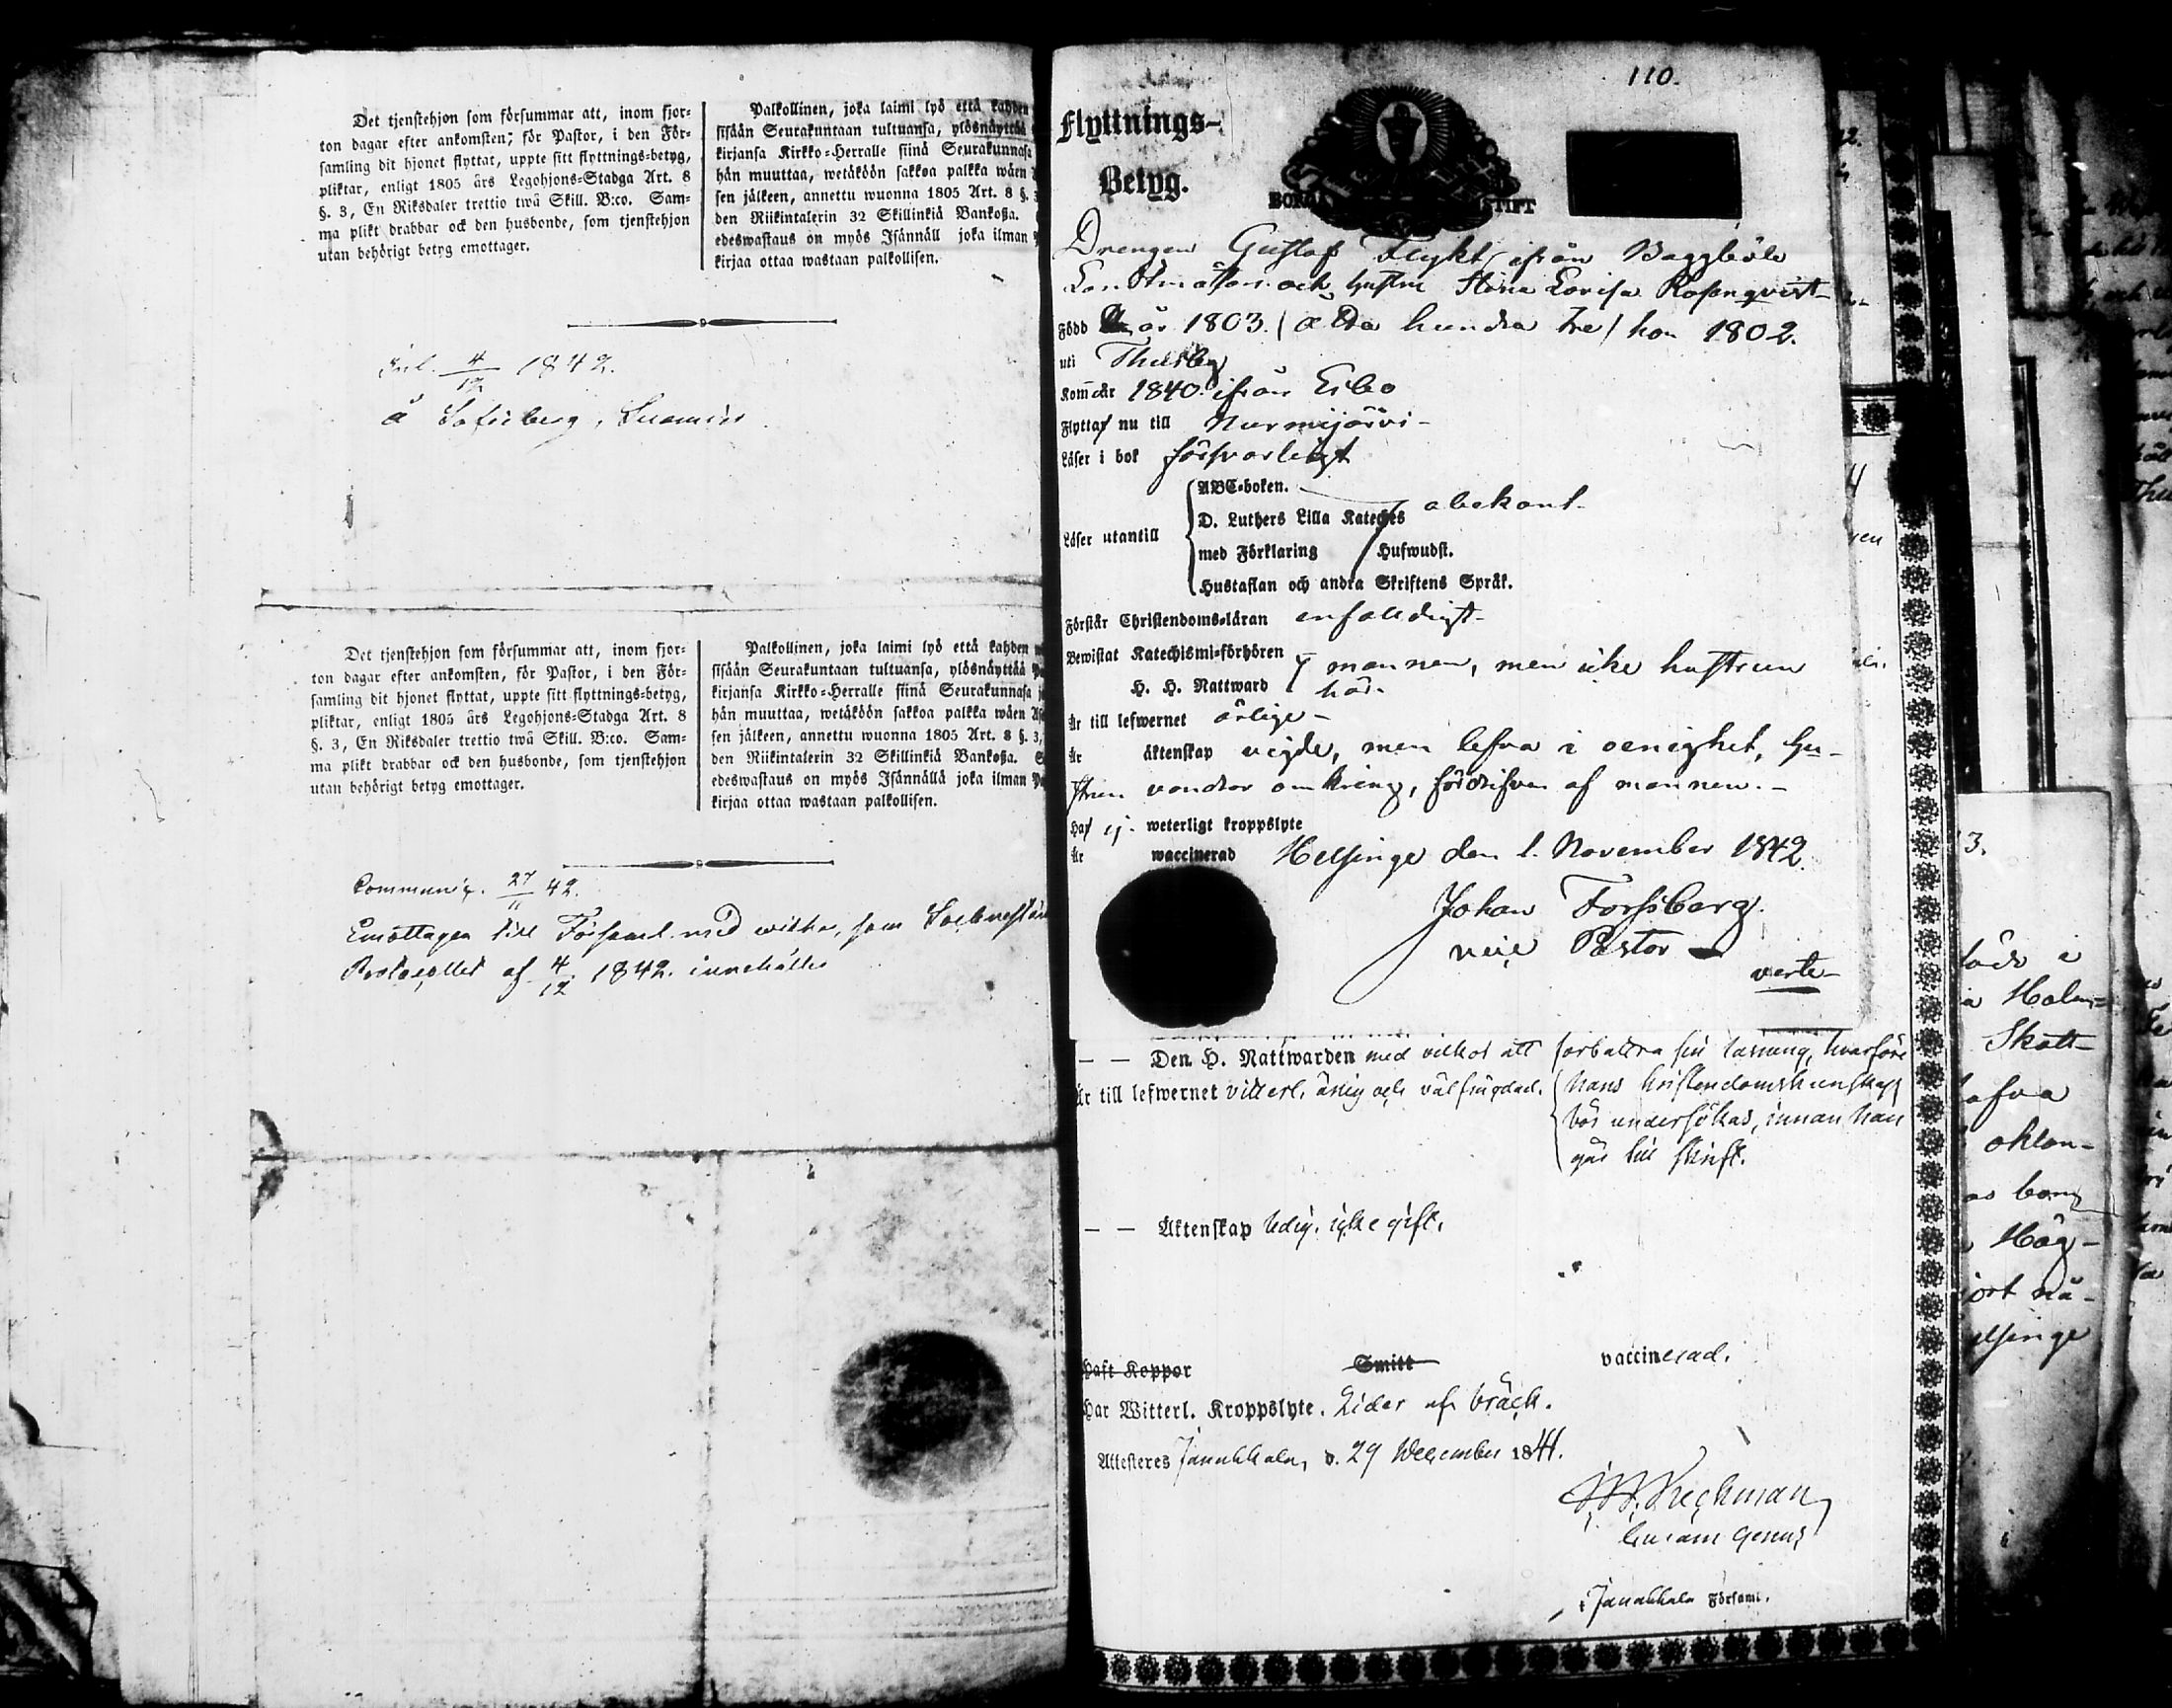 Det tjenstehjon som försummar att, inom fjor-
ton dagar efter ankomsten, för Pastor, i den För-
samling dit hjonet flyttat, uppte sitt flyttnings-betyg,
pliktar, enligt 1805 års Legohjons-Stadga Art. 8
§. 3, En Riksdaler trettio twå Skill. B:co. Sam-
ma plikt drabbar ock den husbonde, som tjenstehjon
utan behörigt betyg emottager.
Palkollinen, joka laimi lyö että kahden
sisään Seurakuntaan tultuansa, ylösnäyttää
kirjansa Kirkko-Herralle siinä Seurakunnasa
hän muuttaa, wetäköön sakkoa palkka wäen
sen jälkeen, annettu wuonna 1805 Art. 8 §. 3
den Riikintalerin 32 Skillinkiä Bankoßa.
edeswastaus on myös Isännäll joka ilman
kirjaa ottaa wastaan palkollisen.
Inl. 4/12 1842.
å Sofieberg,
Det tjenstehjon som försummar att, inom fjor-
ton dagar efter ankomsten, för Pastor, i den För-
samling dit hjonet flyttat, uppte sitt flyttnings-betyg,
pliktar, enligt 1805 års Legohjons-Stadga Art. 8
§. 3, En Riksdaler trettio twå Skill. B:co. Sam-
ma plikt drabbar ock den husbonde, som tjenstehjon
utan behörigt betyg emottager.
Palkollinen, joka laimi lyö että kahden
sisään Seurakuntaan tultuansa, ylösnäyttää
kirjansa Kirkko-Herralle siinä Seurakunnasa
hän muuttaa, wetäköön sakkoa palkka wäen
sen jälkeen, annettu wuonna 1805 Art. 8 §. 3,
den Riikintalerin 32 Skillinkiä Bankoßa.
edeswastaus on myös Isännällä joka ilman
kirjaa ottaa wastaan palkollisen.
Communic. 27/11 42.
Emottagen till Församl. med wilkor, som
Protocollet af 4/12 1842. innehåller
110.
Flyttnings-
Betyg.
STIFT
Drengen Gustaf Flykt ifrån Baggböle
och hustru Stina Lovisa Rosenqvist
Född år 1803. (aderta hundra tre) hon 1802.
uti Thusby
Kom år 1840 ifrån Esbo
Flytta nu till Nurmijärvi -
Läser i bok försvarligt
Läser utantill
ABC-boken.
D. Luthers Lilla Kateches obekant -
med Förklaring Hufwudst.
Hustaflan och andra Skriftens Språk.
Förstår Christendoms-läran enfalldigt -
Bewistat Katechismi-förhören
H. H. Nattward
mannen, men icke hustrun
här.
Är till lefwernet ärlige -
Är äktenskap vigde, men lefva i oenighet, Hu-
strun vandrar omkring, fördrifven af mannen. -
Haf ej. weterligt kroppslyte
Är waccinerad Helsinge den 1. November 1842.
Johan Forssberg.
vice Pastor
verte
— — Den H. Nattwarden med vilkor att förbättra sin läsning, hvarföre
Är till lefwernet vitterl. ärlig och välfrägdad.
hans kristendomskunskap
bör undersökas, innan han
går till skrift.
— — Äktenskap ledig, icke gift.
Haft Koppor Smitt vaccinerad.
Har Witterl. Kroppslyte. Lider af bråck.
Attesteres Janakkala, d. 29 December 1841.
Janakkala Församl.